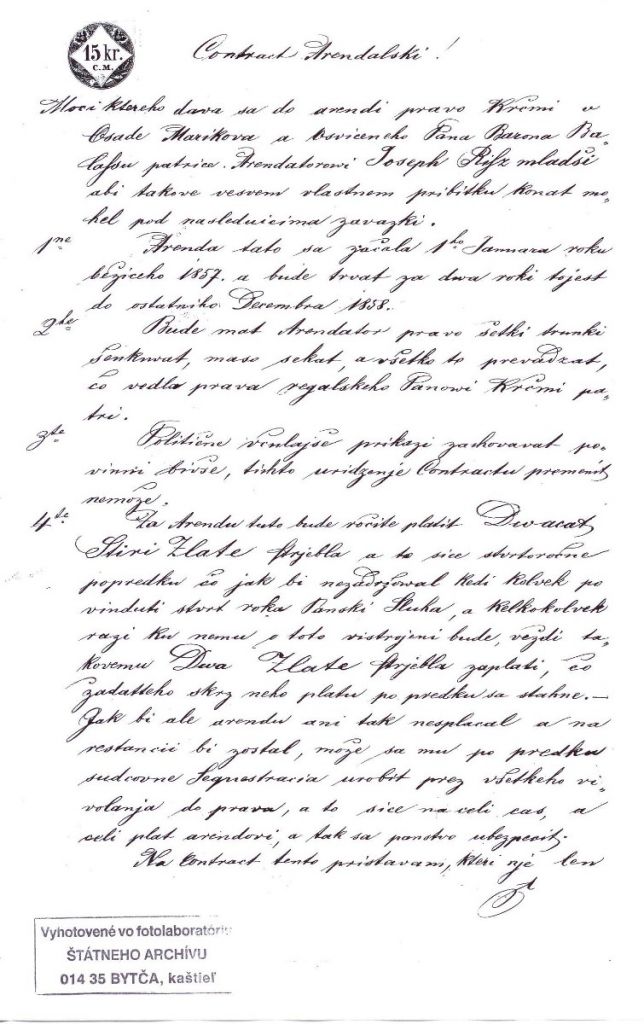 15 kr.
C.M.
Contract Arendalski!
Moci ktereho dava sa do arendi pravo Krčmi v
Osade Marikova a Osviceneho Pana Barona Ba-
lassu patrice. Arendatorowi Joseph Risz mladši
abi takove vesvem vlastnem pribitku konat mo-
hel pod nasleduicima zavazki.
1ne Arenda tato sa začala 1ho Januara roku
bežiceho 1857. a bude trvat za dwa roki tojest
do ostatniho Decembra 1858.
2he Bude mat Arendator pravo šetki trunki
šenkuvat, maso sekat, a všetko to prevadzat,
čo vedla prava regalskeho Panowi Krčmi pa-
tri.
3te Politične prikazi zachovavat po-
bivše, tichto Contractu premenit
nemože.
4te Za Arendu tuto bude ročite platit Dwacat
Štiri Zlate Strjebla a to sice stvrtoročne
popredku čo jak bi nezadržowal kedi kolvek po
vinduti stvrt roka Panski Sluha, a kelkokolvek
razi ku nemu o toto vistrojeni bude, veždi ta-
kovemu Dwa Zlate Strjebla zaplati, čo
skrz neho platu po predku sa stahne.—
Jak bi ale arendu ani tak nesplacal a na
restancii bi zostal, može sa mu po predku
sudcovne Sequestracia urobit prez všetkeho vi-
volanja do prava, a to sice na celi cas, a
celi plat arendovi, a tak sa panstvo ubezpečit.
Na Contract tento pristavam, kteri nje len
Vyhotovené vo fotolaboratóriu
ŠTÁTNEHO ARCHÍVU
014 35 BYTČA, kaštieľ